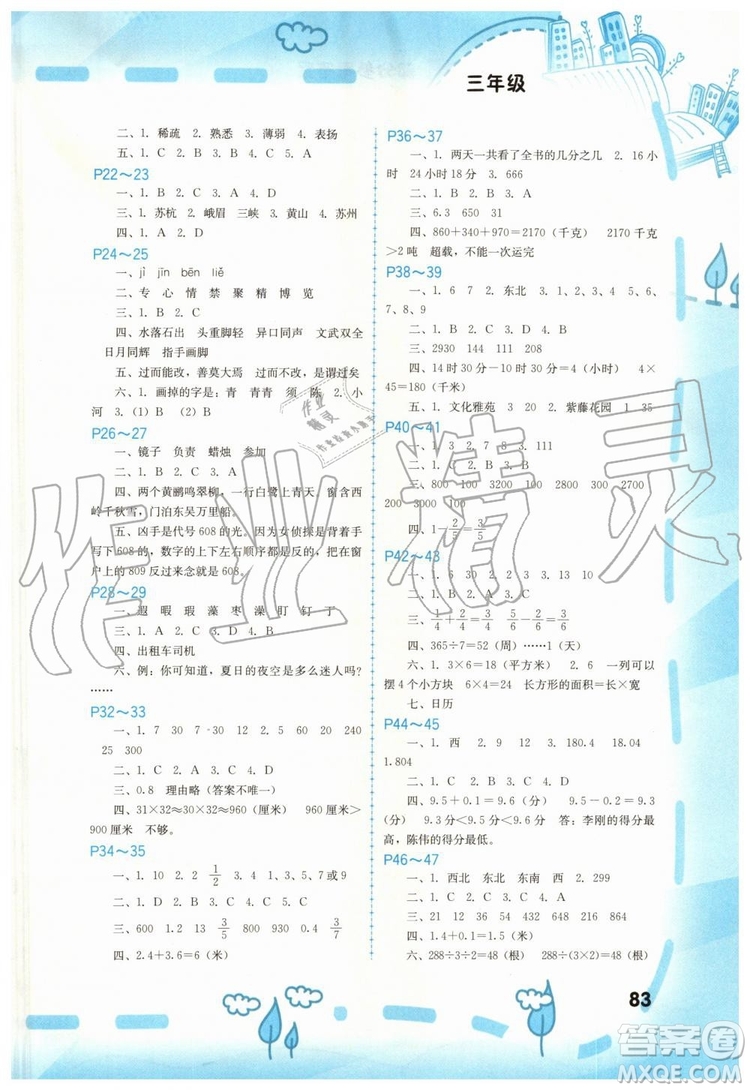 三年级
二、1. 稀疏 2. 熟悉 3. 薄弱 4. 表扬
五、1. C 2. B 3. B 4. D
P22～23
一、1. B 2. C 3. A 4. D
三、1. 苏杭 2. 峨眉 三峡 3. 黄山 4. 苏州
四、1. D 2. A
P24～25
一、jǐ jīn bēn liě
二、专 心 情 禁 聚 精 博 览
三、1. B 2. C
四、水落石出 头重脚轻 异口同声 文武双全
日月同辉 指手画脚
五、过而能改，善莫大焉 过而能改
六、1. 画掉的字是：青 青青 须 陈 2. 小
河 3. (1) B (2) B
P26～27
一、镜子 负责 蜡烛 参加
二、1. B 2. D 3. A 4. C
四、两个黄鹂鸣翠柳，一行白鹭上青天。窗含西
岭千秋雪，门泊东吴万里船。
五、凶手的代号是 608 的光。因为女侦探是背着手
写下 608 的，数字的上下左右顺序都要反过来，桌在窗
户上的 809 反过来念就是 608。
P28～29
一、遐 暇 瑕 藻 枣 澡 盯 钉 丁
二、1. B 2. A 3. C 4. D 5. B
四、出租车司机
六、例：你可知道，夏日的夜空是多么迷人吗？
……
P32～33
一、1. 7 30 7 30 12 2. 5 60 20 240
25 300
二、1. D 2. C 3. A 4. A
三、0.8 理由略（答案不唯一）
四、31×32≈30×32=960（厘米） 960 厘米＞
900 厘米 不够。
P34～35
一、1. 10 2. 2 1/2 3. 1、3、5、7 或 9
二、1. B 2. A 3. C 4. D
三、600 1.2 13 3/5 5 800 3/5
四、2.4+3.6=6（米）
P36～37
一、1. 两天一共看了全书的几分之几 2. 16 小
时 24 小时 18 分 3. 666
二、1. B 2. C 3. A 4. D
三、6.3 650 31
四、860+340+970=2170（千克） 2170 千克
＞2 吨 超载，不能一次运完
P38～39
一、1. 6 7 2. 东北 3. 1、2、3、4、5、6、
7、8、9
二、1. B 2. C 3. D 4. D
三、2930 144 111 208
四、14 时 30 分－10 时 30 分=4（小时） 4×
45=180（千米）
五、1. 文化雅苑 3 20 2. 紫藤花园 1 35
P40～41
2700
200 3000 100
四、1－2/5=3/5
P42～43
一、1. 6 30 2. 2 3. 2
二、1. B 2. C 3. D 4. A
三、1/4+2/4=3/4 5/6－2/6=3/6
四、365÷7=52（周）……1（天）
六、1. 3×6=18（平方米） 2. 6 一列可以
摆 4 个小方块 6×4=24 长方形的面积=长×宽
七、日历
P44～45
一、1. 西 2. 9 12 3. 180.4 18.04
1.804
二、1. C 2. B 3. D 4. A
四、9.5+0.1=9.6（分） 9.5－0.2=9.3
（分） 9.3 分＜9.5 分＜9.6 分 答：李刚的得分最
高，陈伟的得分最低。
P46～47
一、1. 西北 东北 东南 西南 2. 299
二、1. C 2. C 3. D 4. A
三、21 12 36 54 432 544
四、1.4+0.1=1.5（米）
六、288÷3÷2=48（根） 288÷(3×2)=48（根）
83
作业精灵
答案圈
MXQE.COM